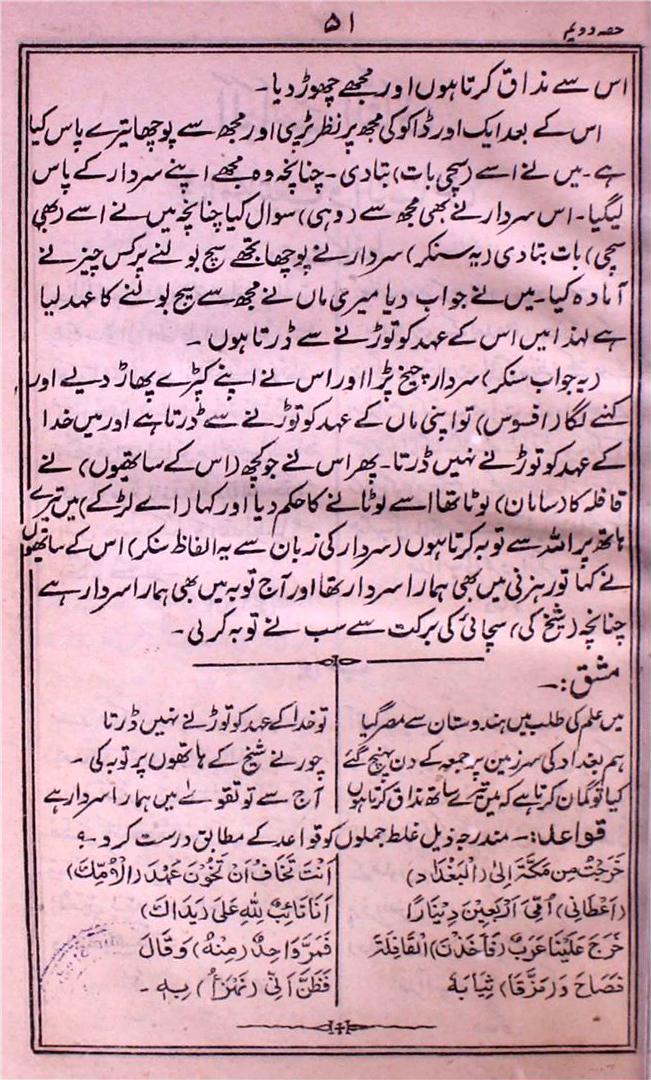 حصہ دوئم
۵۱
اس سے مذاق کرتا ہوں اور مجھے چھوڑ دیا۔
اس کے بعد ایک اور ڈاکو کی مجھ پر نظر پڑی اور مجھ سے پوچھا تیرے پاس کیا
ہے۔ میں نے اسے (سچی بات) بتا دی۔ چنانچہ وہ مجھے اپنے سردار کے پاس
لیگیا۔ اس سردار نے بھی مجھ سے (وہی) سوال کیا چنانچہ میں نے اسے (بھی
سچی) بات بتا دی (یہ سنکر) سردار نے پوچھا تجھے سچ بولنے پر کس چیز نے
آمادہ کیا۔ میں نے جواب دیا میری ماں نے مجھ سے سچ بولنے کا عہد لیا
ہے لہذا میں اس کے عہد کو توڑنے سے ڈرتا ہوں۔
(یہ جواب سنکر) سردار چیخ پڑا اور اس نے اپنے کپڑے پھاڑ دیے اور
کہنے لگا (افسوس) تو اپنی ماں کے عہد کو توڑنے سے ڈرتا ہے اور میں خدا
کے عہد کو توڑنے نہیں ڈرتا۔ پھر اس نے جو کچھ (اس کے ساتھیوں) نے
قافلہ کا (سامان) لوٹا تھا اسے لوٹانے کا حکم دیا اور کہا (اے لڑکے) میں تیرے
ہاتھ پر اللہ سے توبہ کرتا ہوں (سردار کی زبان سے یہ الفاظ سنکر) اس کے ساتھیوں
نے کہا تو رہزنی میں بھی ہمارا سردار تھا اور آج توبہ میں بھی ہمارا سردار ہے
چنانچہ (شیخ کی) سچائی کی برکت سے سب نے توبہ کر لی۔
مشق:۔
میں علم کی طلب میں ہندوستان سے مصر گیا
ہم بغداد کی سرزمین پر جمعہ کے دن پہنچ گئے
کیا تو گمان کرتا ہے کہ میں تیرے ساتھ مذاق کرتا ہوں
تو خدا کے عہد کو توڑنے نہیں ڈرتا
چور نے شیخ کے ہاتھوں پر توبہ کی۔
آج سے تو تقوے میں ہمارا سردار ہے
قواعد:۔ مندرجہ ذیل غلط جملوں کو قواعد کے مطابق درست کرو۔؟
خَرَجْتُ مِن مَكَّةَ إِلَى (الْبَغْدَاد)
(اَعْطَانِي) اُمِّي اَرْبَعِيْنَ دِيْنَارًا
خَرَجَ عَلَيْنَا عَرَبٌ (فَاَخَذَتْ) الْقَافِلَةَ
فَصَاحَ وَ (مَزَّقَا) ثِيَابَهُ
اَنْتَ تَخَافُ اَنْ تَخُوْنَ عَهْدَ (الْاُمِّكَ)
اَنَا تَائِبٌ لِلّٰهِ عَلَى (يَدَاكَ)
فَمَرَّ وَاحِدٌ (مِنْهُ) وَقَالَ
فَظَنَّ اَنِّي (نَهْزَأُ) بِهٖ۔